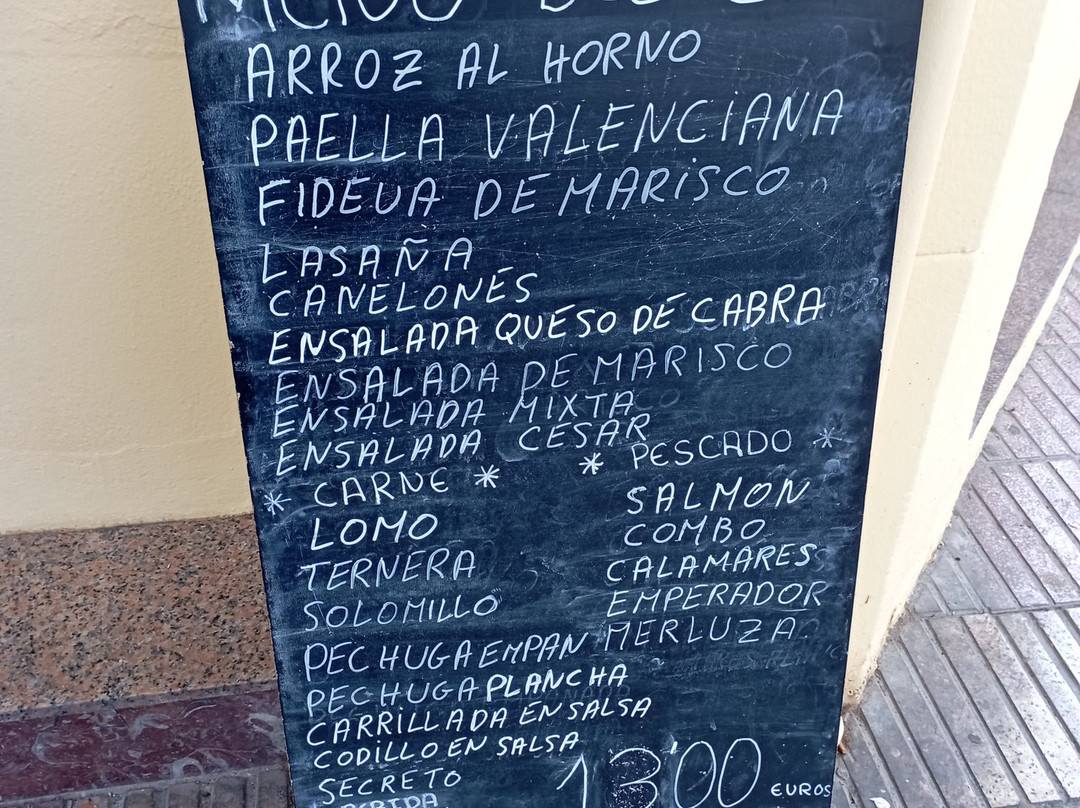 ARROZ AL HORNO
PAELLA VALENCIANA
FIDEUA DE MARISCO
LASAÑA
CANELONES
ENSALADA QUESO DE CABRA
ENSALADA DE MARISCO
ENSALADA MIXTA
ENSALADA CESAR
* CARNE *
LOMO
TERNERA
SOLOMILLO
PECHUGA EMPAN
PECHUGA PLANCHA
CARRILLADA EN SALSA
CODILLO EN SALSA
SECRETO
* PESCADO *
SALMON
COMBO
CALAMARES
EMPERADOR
MERLUZA
13'00 EUROS